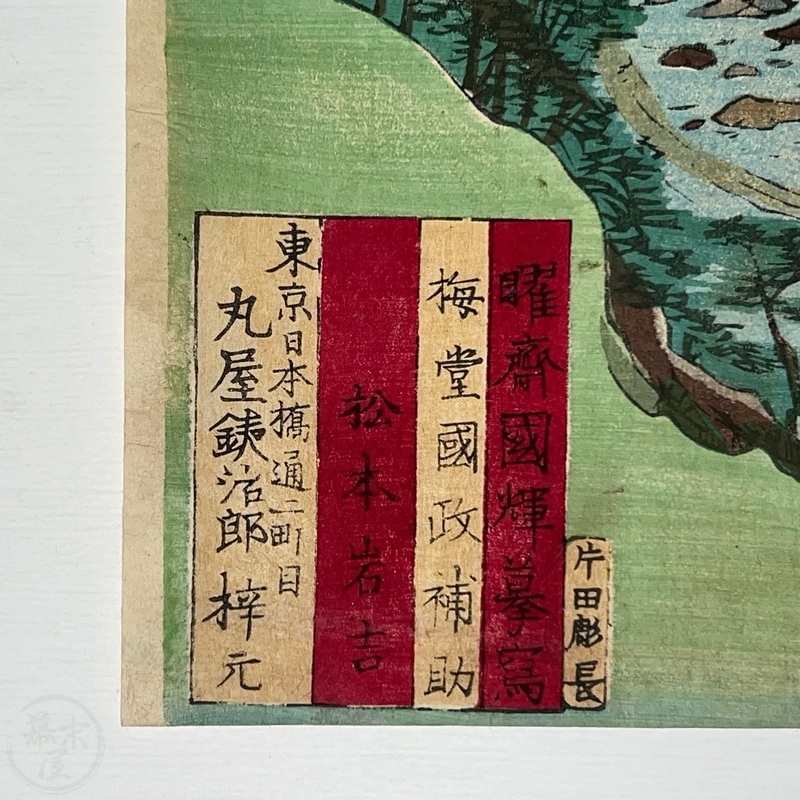 曜齋國輝摹寫
梅堂國政補助
松本岩吉
東京日本橋通二町目
丸屋銕治郎梓元
片田彫長
幕末屋